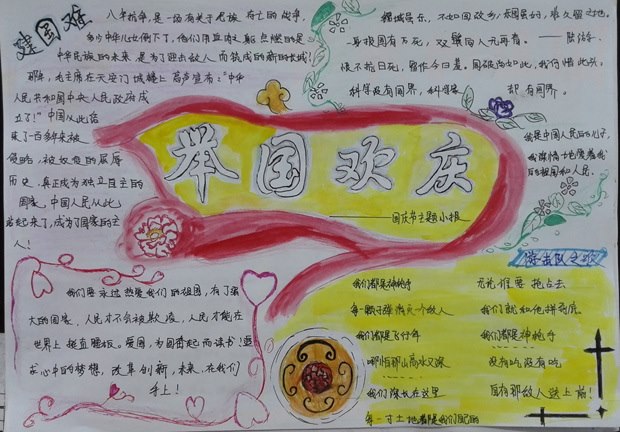 建国难
八年抗争,是一场有关于民族存亡的战争,
多少中华儿女倒下了,他们用血肉之躯点燃的是
中华民族的未来,是为了迎击敌人而筑成的新的长城!
那年,毛主席在天安门城楼上高声宣布:"中华
人民共和国中央人民政府成
立了!"中国从此结
束了一百多年来被
侵略,被奴役的屈辱
历史,真正成为独立自主的
国家,中国人民从此
站起来了,成为了国家的主
人!
锦城虽乐,不如回故乡;乐园虽好,非久留之地。
身报国有万死,双鬓向人无再青。——陆游
恨不抗日死,留作今日羞。国破尚如此,我何惜此头。
科学没有国界,科学家却有国界。
我是中国人民的儿子,
我深情地爱着我
的祖国和人民。
举国欢庆
——国庆节主题小报
我们要永远热爱我们的祖国,有了强
大的国家,人民才不会被欺凌,人民才能在
世界上挺直腰板。爱国,为国奋起而读书!追
求心中的梦想,改革创新,未来在我们
手上!
游击队之歌
我们都是神枪手
每一颗子弹消灭一个敌人
我们都是飞行军
哪怕那山高水又深
我们生长在这里
每一寸土地都是我们自己的
无论谁要抢占去
我们就和他拼到底
我们都是神枪手
没有吃没有吃
自有那敌人送上前!